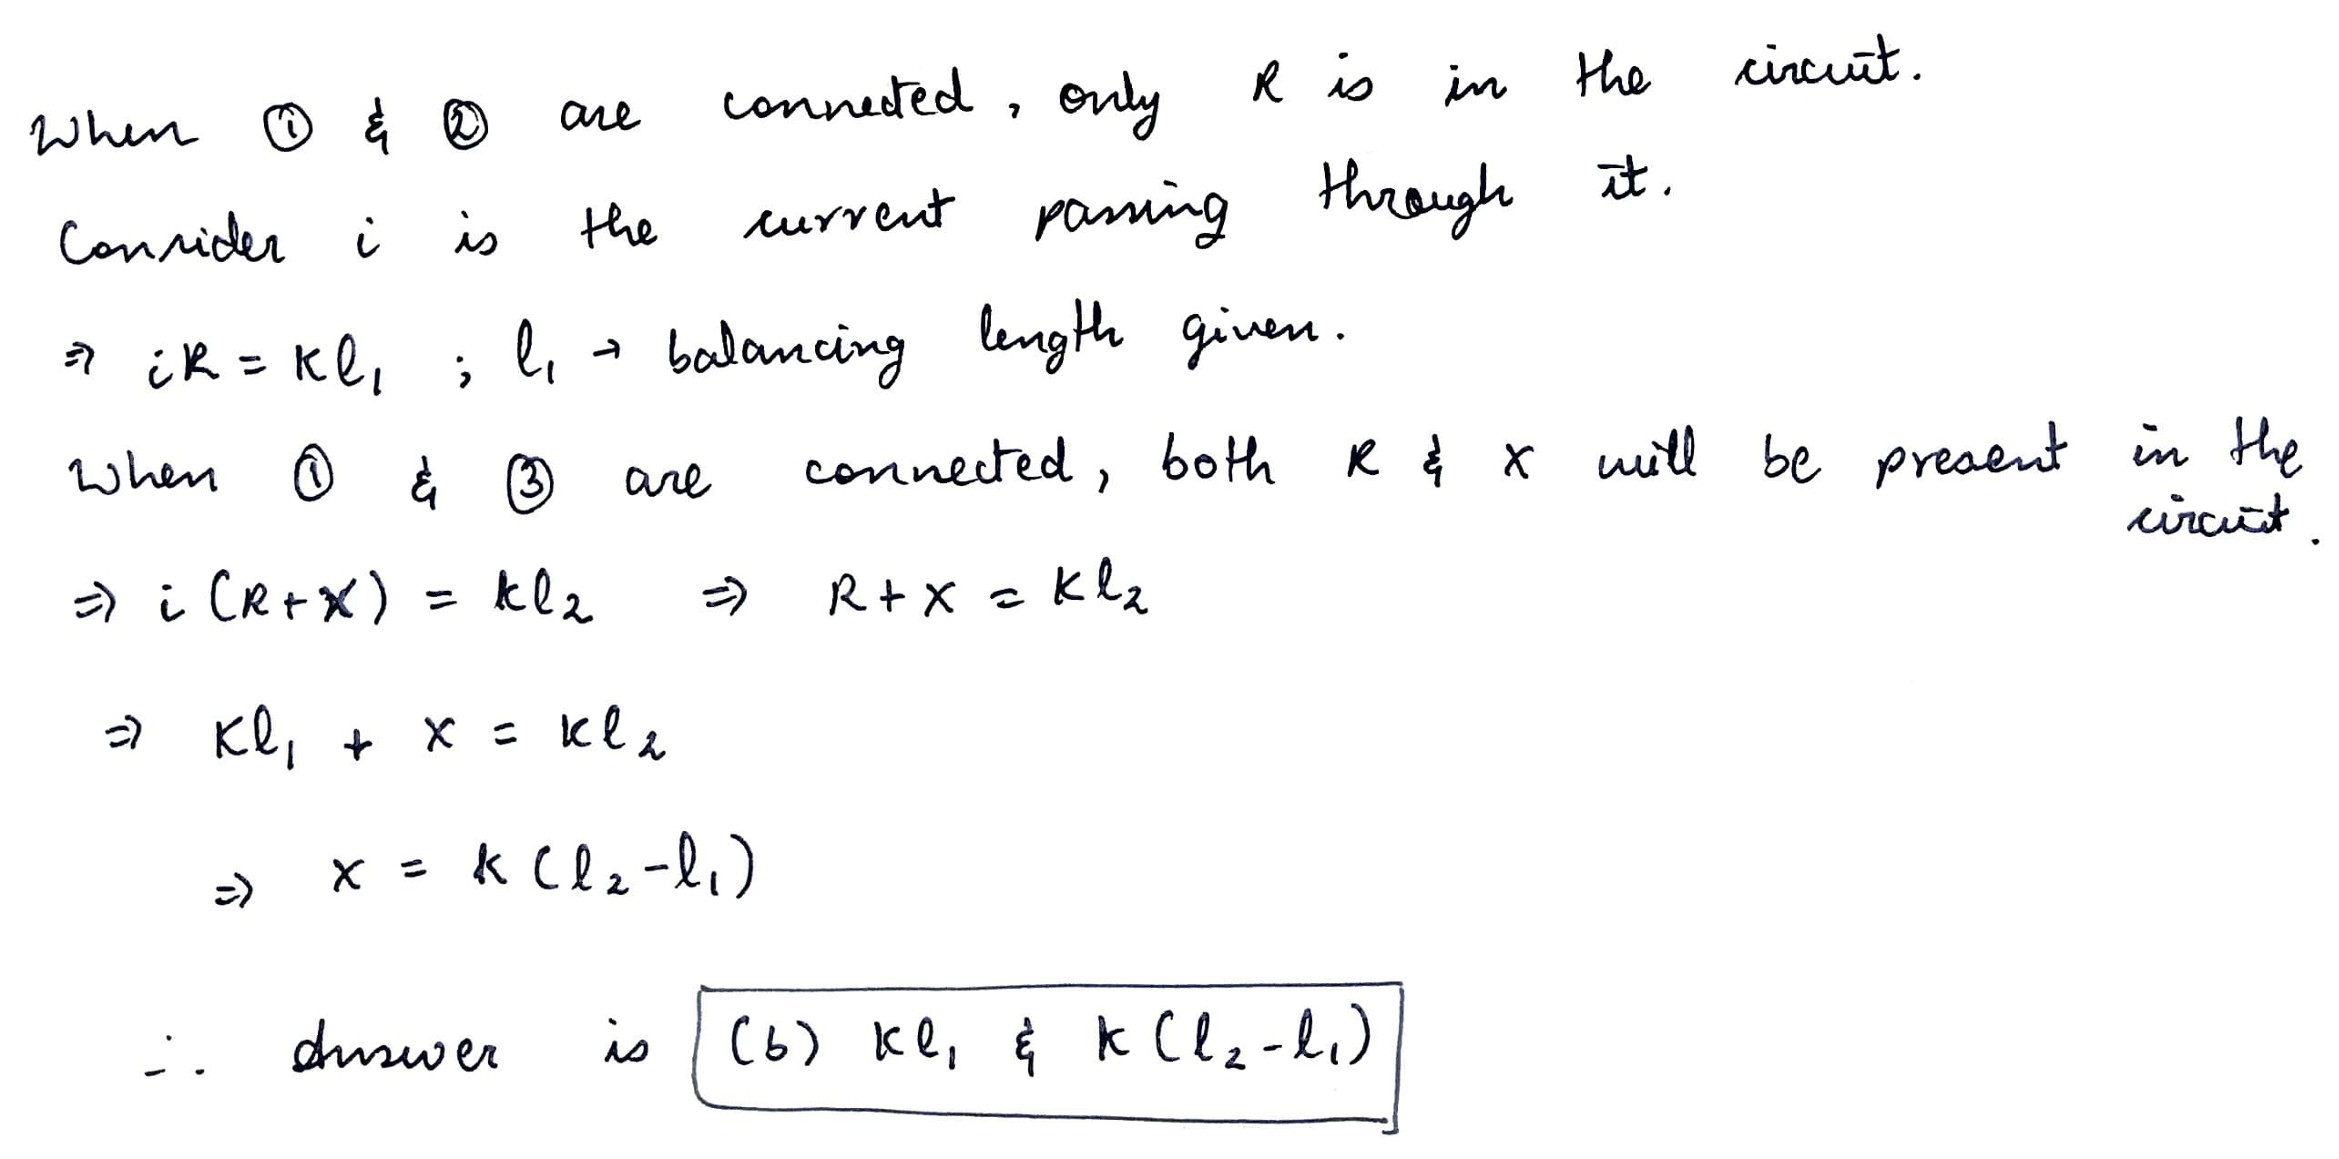 When ① & ② are connected, only R is in the circuit.
Consider i is the current passing through it.
⇒ iR = Kl₁ ; l₁ → balancing length given.
When ① & ③ are connected, both R & X will be present in the circuit.
⇒ i (R+X) = kl₂ ⇒ R+X = Kl₂
⇒ Kl₁ + X = Kl₂
⇒ X = K (l₂-l₁)
∴ Answer is (b) Kl₁ & K (l₂-l₁)